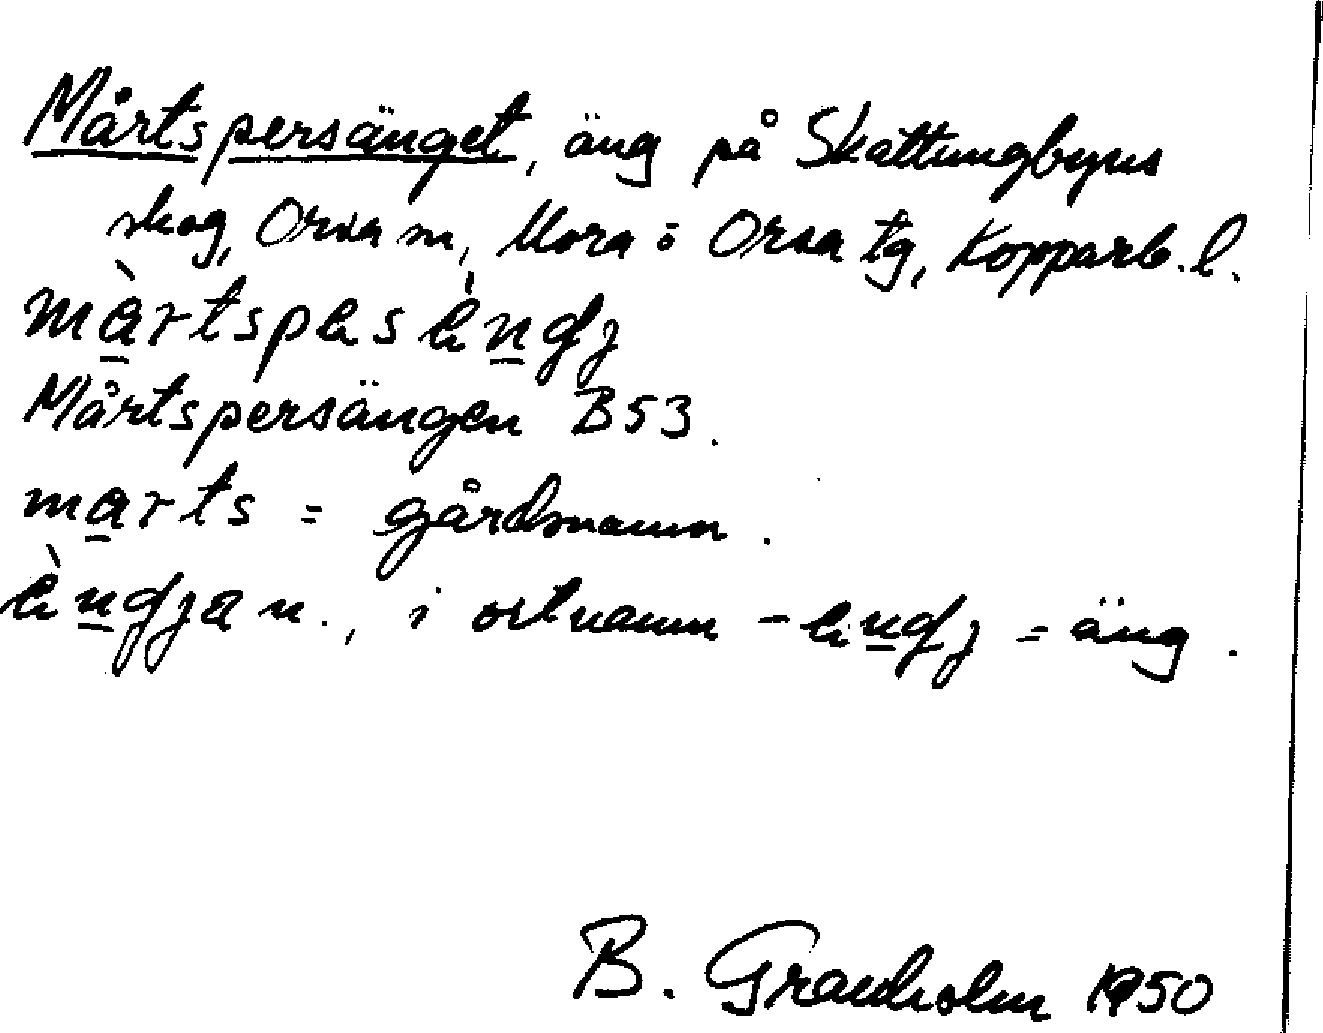 Mårtspersänget, äng på Skattungbyns
skog, Orsa sn, Mora o Orsa tg, Kopparb. l.
màrtspesèngj
Mårtspersängen B53.
marts = gårdsnamn.
èngja n., i ortnamn -engj = äng.
B. Granholm 1950